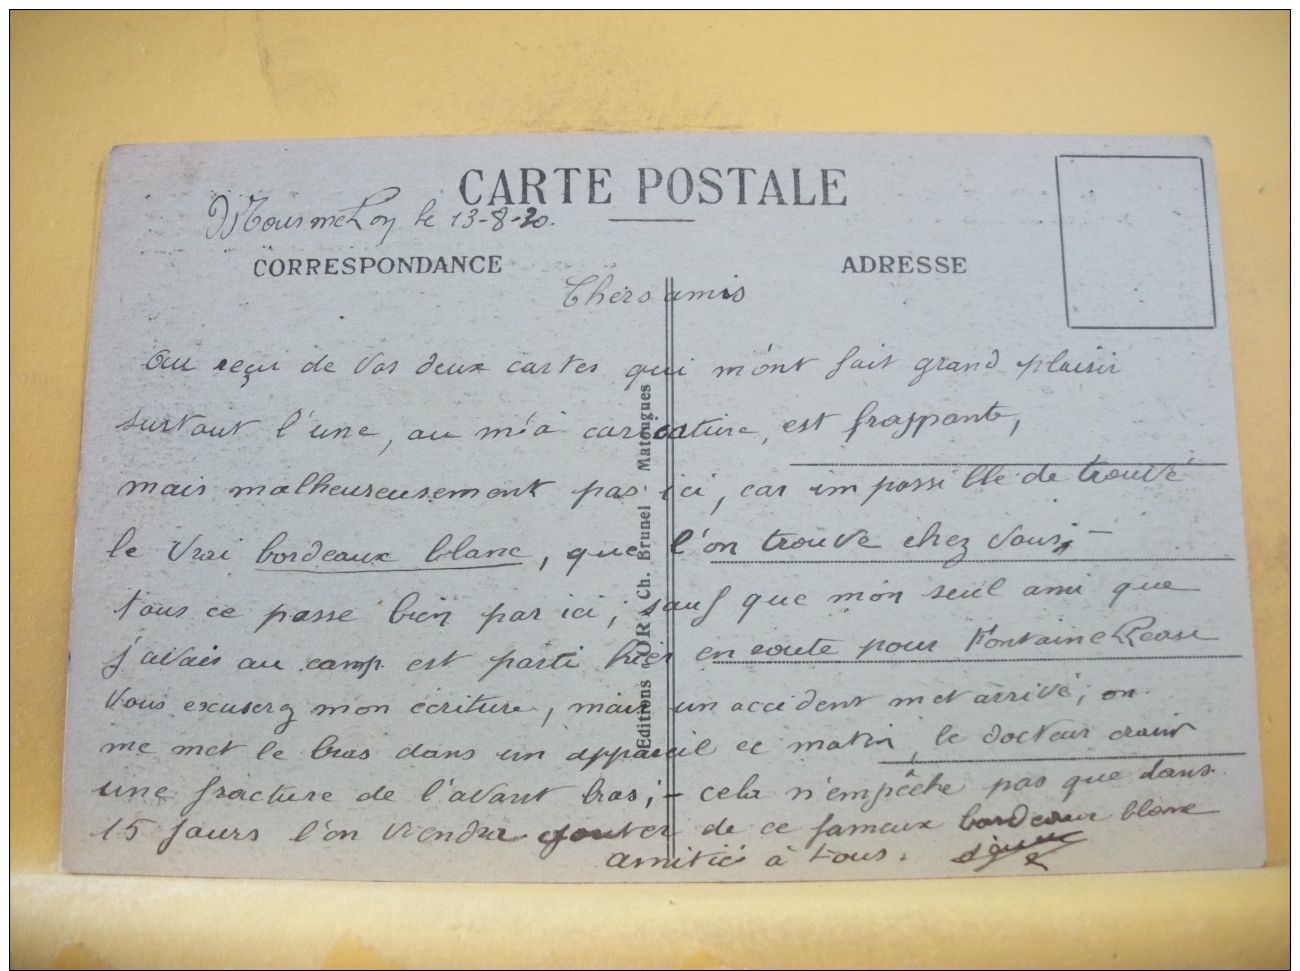 CARTE POSTALE
Mourmelon le 13-8-30.
CORRESPONDANCE
ADRESSE
Chers amis
au reçu de vos deux cartes qui m'ont fait grand plaisir
surtout l'une, ou m'a caricature, est frappante,
mais malheureusement pas ici, car impossible de trouvé
le vrai bordeaux blanc, que l'on trouve chez vous, -
tous ce passe bien par ici; sauf que mon seul ami que
j'avais au camp est parti hier en route pour Fontaine
vous excuserez mon écriture, mais un accident met arrivé, on
me met le bras dans un appareil ce matin, le docteur craint
une fracture de l'avant bras; - cela n'empêche pas que dans
15 jours l'on viendra gouter de ce fameux bordeaux blanc
amitiés à tous.
Editions "OR" Ch. Brunel Matougues